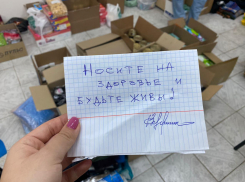 Носите на
здоровье и
будьте живы!